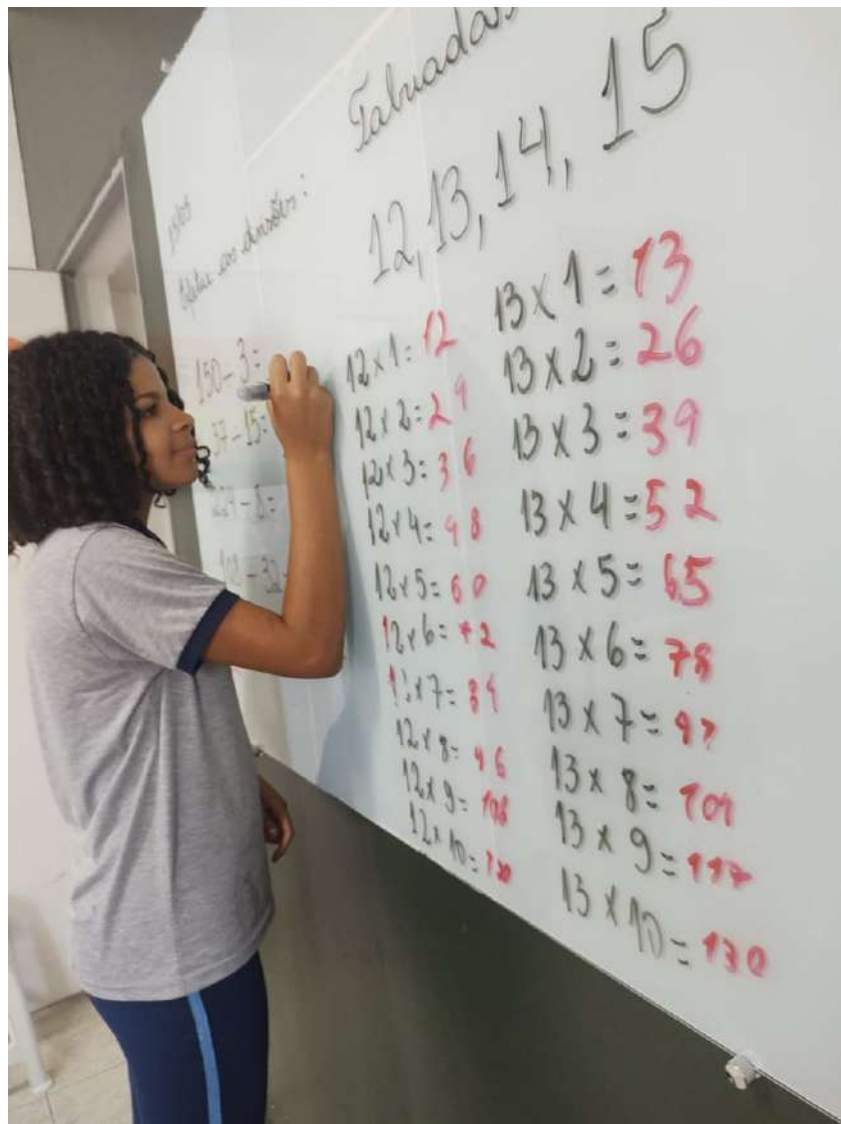 Tabuadas
12, 13, 14, 15
Efetue as divisões:
150 – 3=
37 – 15=
224 – 8=
12 x 1 = 12
12 x 2 = 24
12 x 3 = 36
12 x 4 = 48
12 x 5 = 60
12 x 6 = 72
12 x 7 = 84
12 x 8 = 96
12 x 9 = 108
12 x 10 = 120
13 x 1 = 13
13 x 2 = 26
13 x 3 = 39
13 x 4 = 52
13 x 5 = 65
13 x 6 = 78
13 x 7 = 91
13 x 8 = 104
13 x 9 = 117
13 x 10 = 130